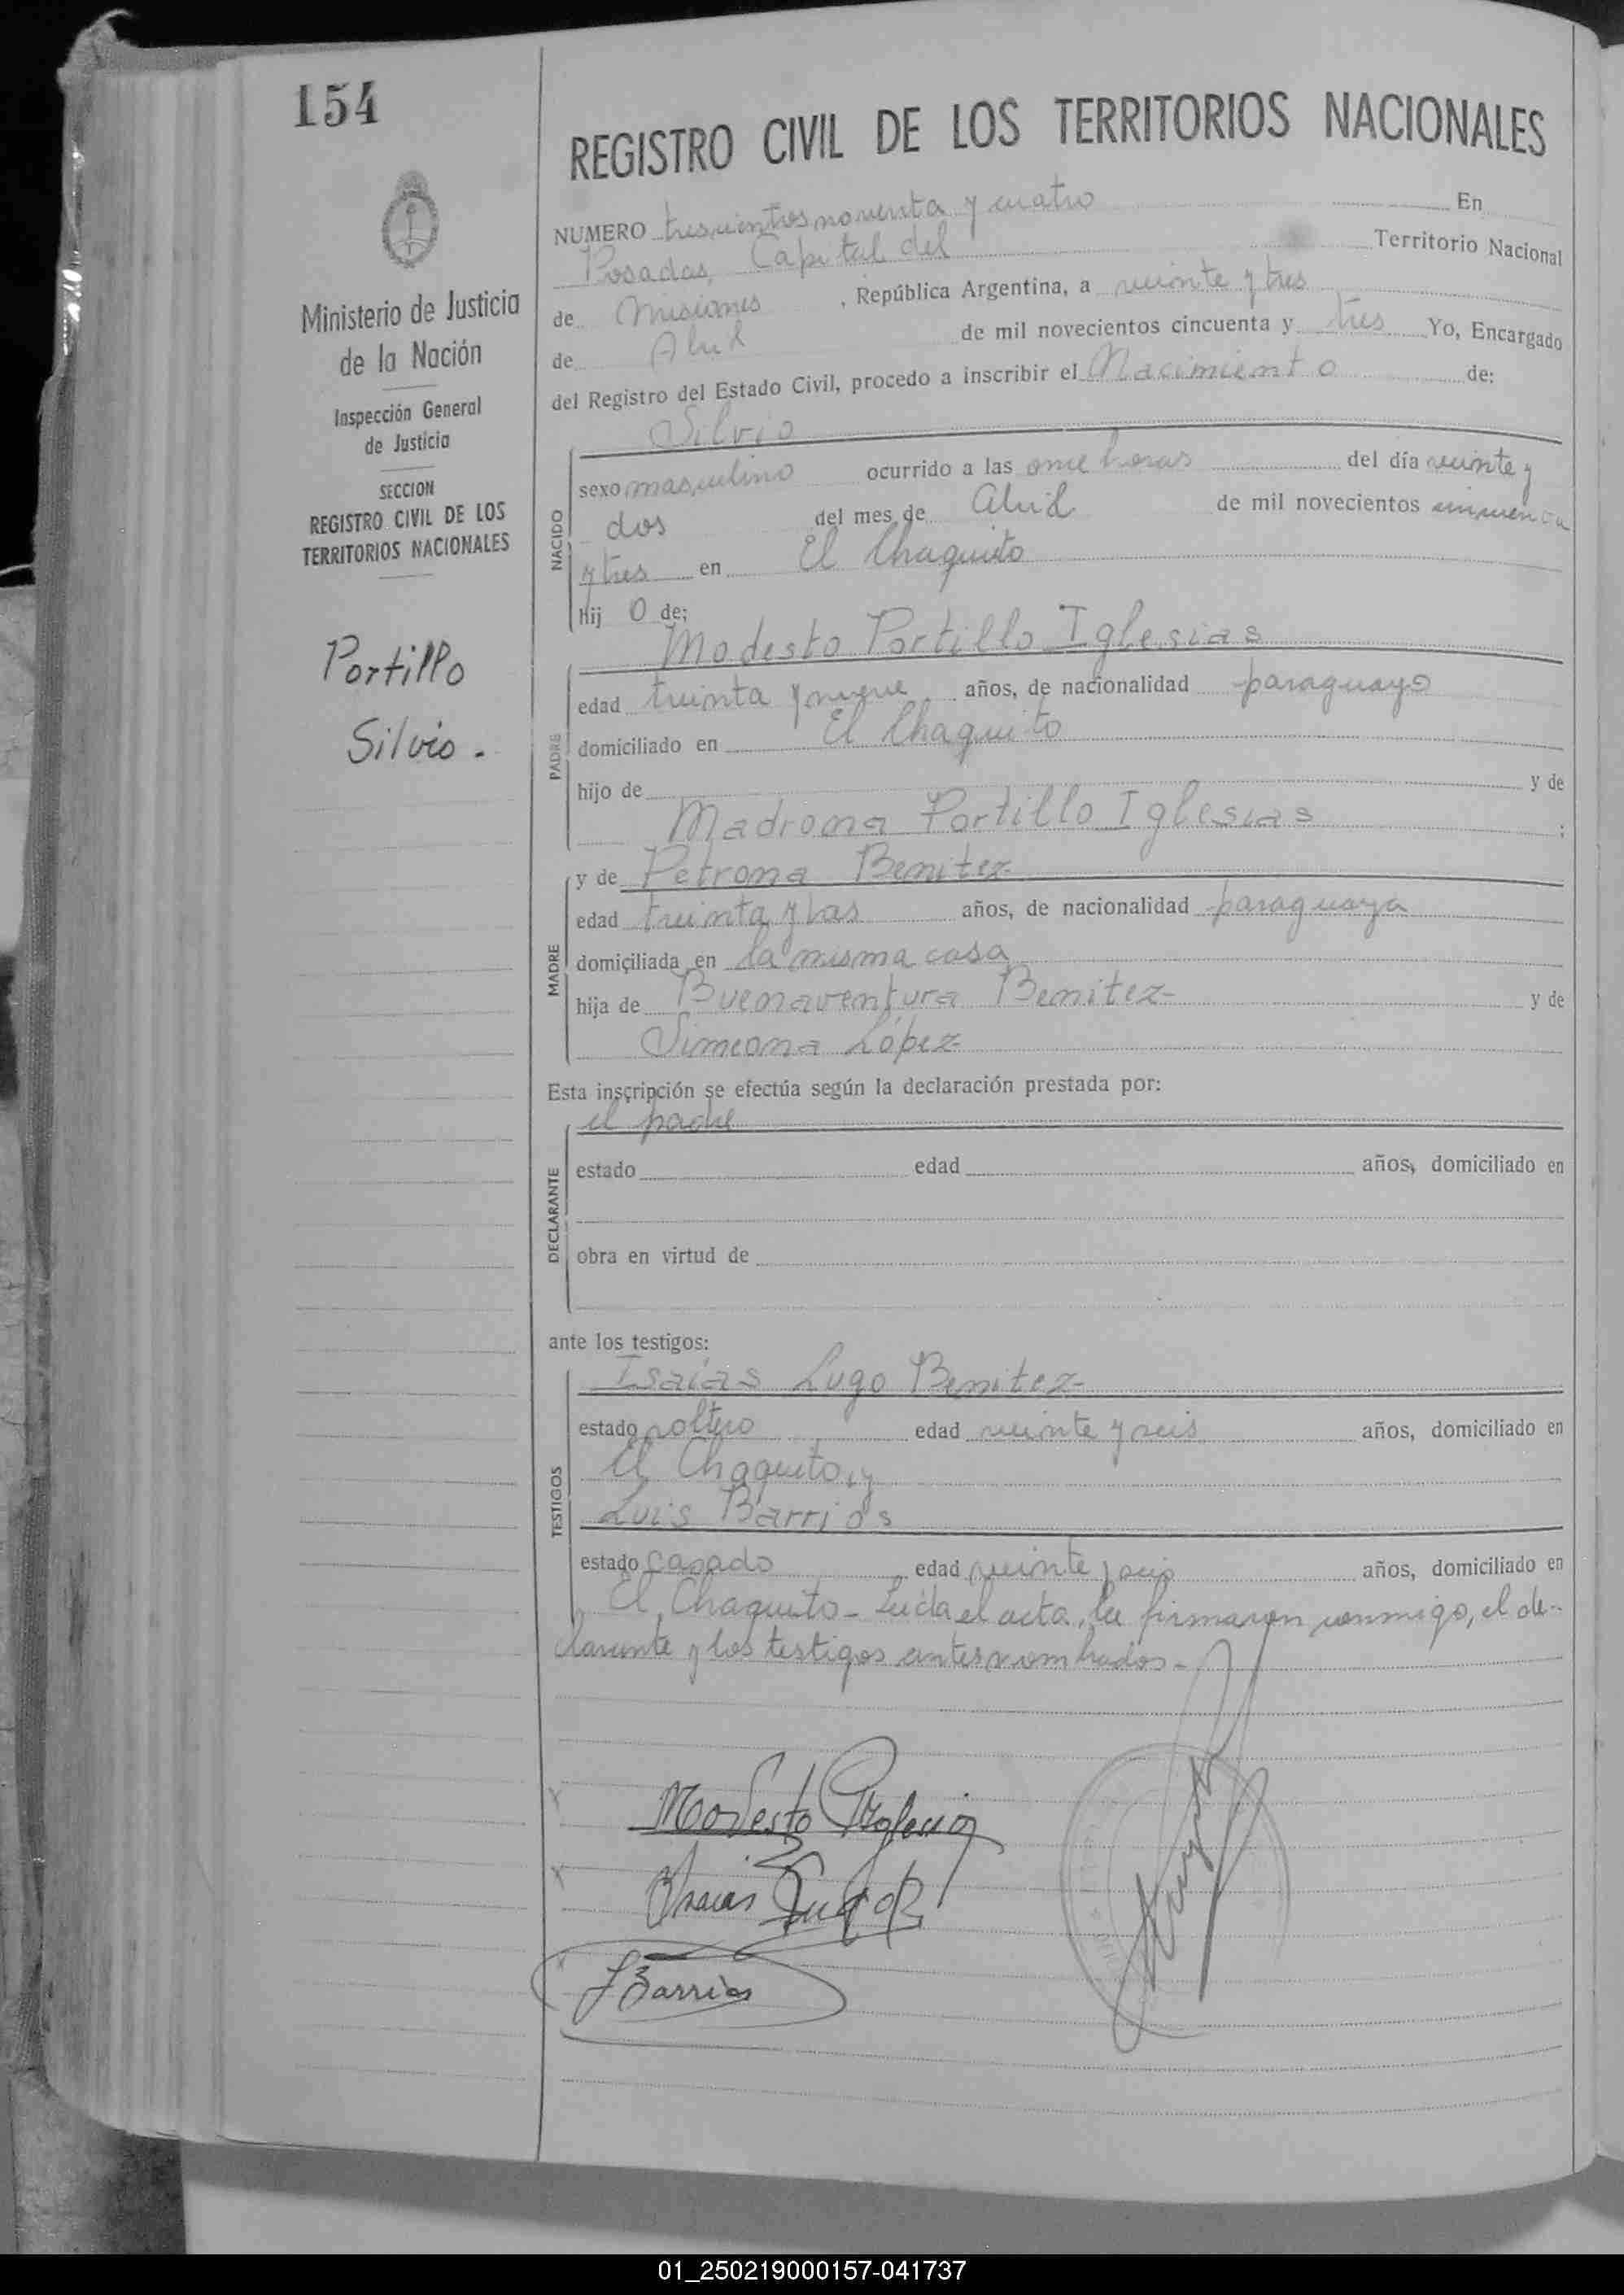 154
REGISTRO CIVIL DE LOS TERRITORIOS NACIONALES
Ministerio de Justicia
de la Nación
Inspección General
de Justicia
SECCION
REGISTRO CIVIL DE LOS
TERRITORIOS NACIONALES
Portillo
Silvio.
NUMERO trescientos noventa y cuatro En
Posadas, Capital del Territorio Nacional
de Misiones, República Argentina, a veinte y tres
de Abril de mil novecientos cincuenta y tres Yo, Encargado
del Registro del Estado Civil, procedo a inscribir el Nacimiento de:
Silvio
NACIDO
sexo masculino ocurrido a las once horas del día veinte y
dos del mes de abril de mil novecientos cincuenta
y tres en El Chaquito
hij o de:
Modesto Portillo Iglesias
PADRE
edad treinta y nueve años, de nacionalidad paraguayo
domiciliado en El Chaquito
hijo de y de
Madrona Portillo Iglesias ;
y de Petrona Benitez
MADRE
edad treinta y años, de nacionalidad paraguaya
domiciliada en la misma casa
hija de Buenaventura Benitez y de
Simeona López
Esta inscripción se efectúa según la declaración prestada por:
el padre
DECLARANTE
estado edad años, domiciliado en
obra en virtud de
ante los testigos:
Isaías Lugo Benitez
TESTIGOS
estado soltero edad veinte y seis años, domiciliado en
El Chaquito, y
Luis Barrios
estado casado edad veinte y seis años, domiciliado en
El Chaquito - Leída el acta, la firmaron conmigo, el de-
clarante y los testigos antes nombrados.-
Modesto P Iglesias
Isaias Lugo B
L Barrios
01_250219000157-041737